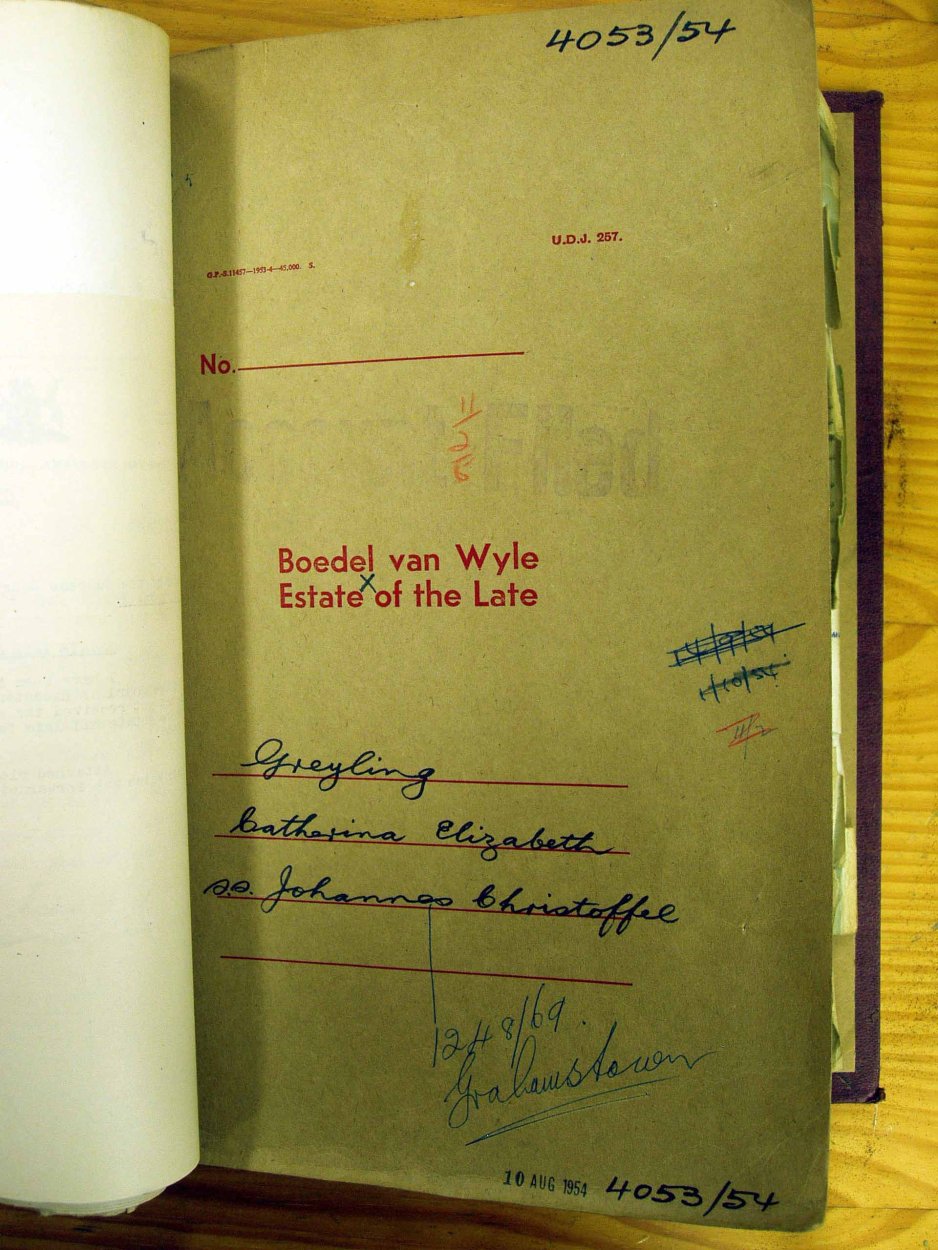 4053/54
U.D.J. 257.
G.P.-S.11457—1953-4—45,000. S.
No.
Boedel van Wyle
Estate x of the Late
11/2
Greyling
Catherina Elizabeth
s.s. Johannes Christoffel
1248/69.
Grahamstown
10 AUG 1954 4053/54